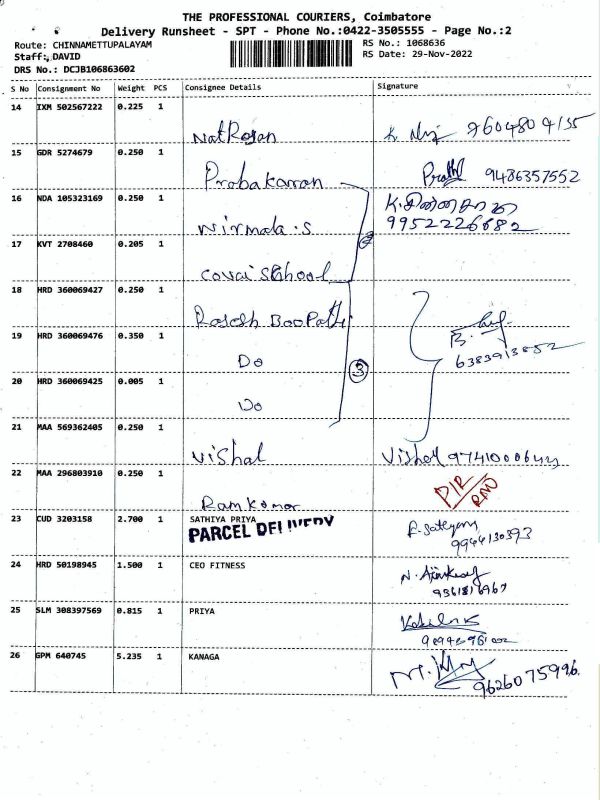 THE PROFESSIONAL COURIERS, Coimbatore
Delivery Runsheet - SPT - Phone No.:0422-3505555 - Page No.:2
Route: CHINNAMETTUPALAYAM RS No.: 1068636
Staff: DAVID RS Date: 29-Nov-2022
DRS No.: DCJB106863602
S No Consignment No Weight PCS Consignee Details Signature
14 IXM 502567222 0.225 1
NatRajan K. 9604804135
15 GDR 5274679 0.250 1
Prabakaran 9486357552
16 NDA 105323169 0.250 1
Nirmala.S 9952226682
17 KVT 2708460 0.205 1
Covai School
18 HRD 360069427 0.250 1
Rajesh BooPathi
19 HRD 360069476 0.350 1
Do 6383913852
3
20 HRD 360069425 0.005 1
Do
21 MAA 569362405 0.250 1
Vishal Vishal
22 MAA 296803910 0.250 1
Ramkumar
23 CUD 3203158 2.700 1 SATHIYA PRIYA
PARCEL DELIVERY
9944130393
24 HRD 50198945 1.500 1 CEO FITNESS
25 SLM 308397569 0.815 1 PRIYA
26 GPM 640745 5.235 1 KANAGA
9626075996